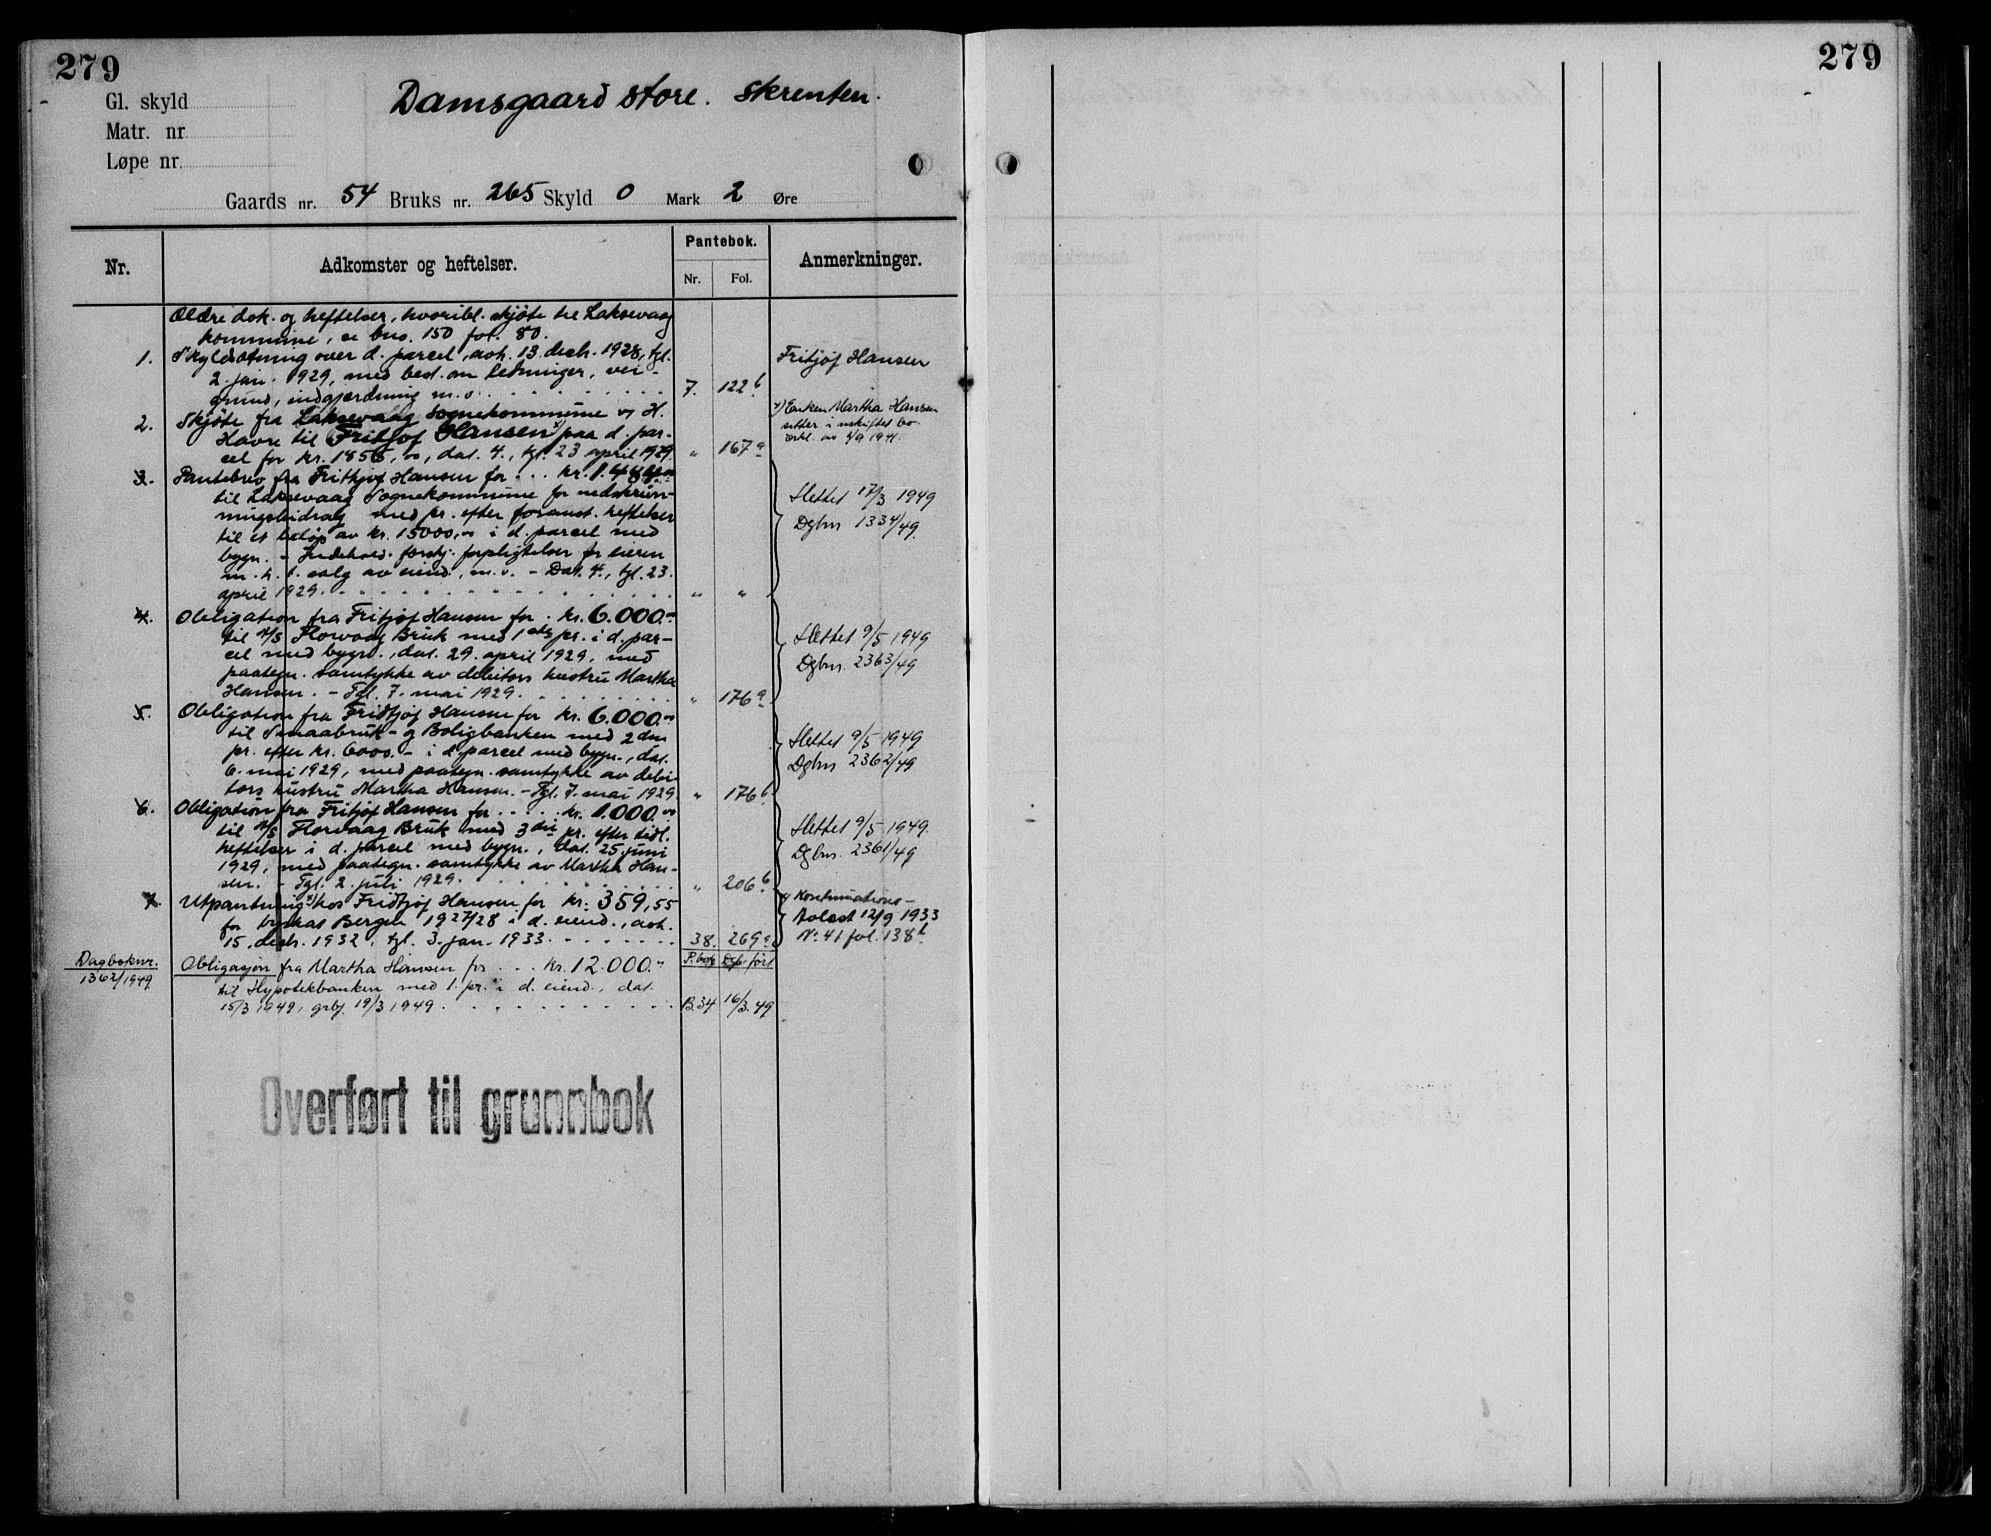 279
Gl. skyld
Matr. nr
Løpe nr.
Damsgaard store. Skrenten.
Gaards nr. 54 Bruks nr. 265 Skyld 0 Mark 2 Øre
Nr.
Adkomster og heftelser.
Pantebok.
Nr. Fol.
Anmerkninger.
Ældre dok. og heftelser, hvoribl. skjøte til Laksevaag
kommune, se bnr. 150 fol. 80.
1. Skyldsætning over d. parcel, avh. 13. decb. 1928, tgl.
2. jan. 1929, med best. om ledninger, vei-
grund, indgjærdning m.v. 7. 122 b
Fritjof Hansen
2. Skjøte fra Laksevaag Sognekommune v/ H.
Havre til Fritjof Hansen x) paa d. par-
cel for kr. 1855,00, dat. 4., tgl. 23 april 1929. " 167 a
x) Enken Martha Hansen
sitter i uskiftet bo.
erkl. av 4/9 1941.
3. Pantebrev fra Frithjof Hansen for . . . kr. 1.484,00
til Laksevaag Sognekommune for nedskriv-
ningsbidrag med pr. efter foranst. heftelser
til et beløp av kr. 15000,00 i d. parcel med
bygn. - Indehold. forskj. forpligtelser for eieren
m. h. t. salg av eiend., m.v. - Dat. 4., tgl. 23.
april 1929. " "
Slettet 17/3 1949
Dgbnr 1334/49.
4. Obligation fra Fritjof Hansen for . kr. 6.000.-
til A/S Florvaag Bruk med 1ste pr. i d. par-
cel med bygn., dat. 29. april 1929, med
paategn. samtykke av debitors hustru Martha
Hansen. - Tgl. 7. mai 1929. " 176 a
Slettet 9/5 1949
Dgbnr. 2363/49
5. Obligation fra Fridtjof Hansen for kr. 6.000.00
til Smaabruk- og Boligbanken med 2den
pr. efter kr. 6000.- i d. parcel med bygn., dat.
6. mai 1929, med paategn. samtykke av debi-
tors hustru Martha Hansen. - Tgl. 7. mai 1929 " 176 b
Slettet 9/5 1949
Dgbnr 2362/49
6. Obligation fra Fritjof Hansen for . . . . kr. 1.000.00
til A/S Florvaag Bruk med 3die pr. efter tidl.
heftelser i d. parcel med bygn., dat. 25. juni
1929, med paategn. samtykke av Martha Han-
sen. - Tgl. 2. juli 1929. " 206 b
Slettet 9/5 1949.
Dgbnr. 2361/49
7. Utpantning x) hos Fridtjof Hansen for kr. 359,55
for byskat Bergen 1927/28 i d. eiend., avh.
15. decb. 1932, tgl. 3. jan. 1933. 38. 269 a
x) Kontinuations-
Avlest 12/9 1933
No. 41 fol. 138 b
Dagboknr.
1362/1949
P.bok Dgb ført
Obligasjon fra Martha Hansen for . . . kr. 12.000."
til Hypotekbanken med 1. pr. i d. eiend., dat.
15/3 1949, grbf. 19/3 1949. B.34 16/3.49
Overført til grunnbok
279